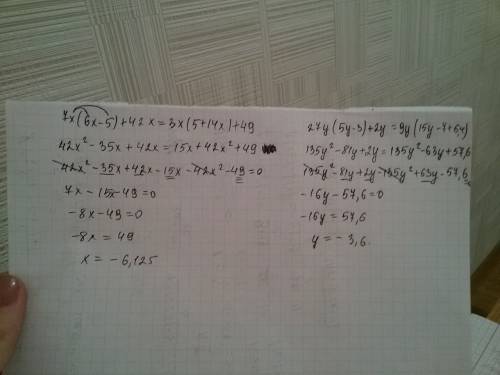 7x(6x-5)+42x=3x(5+14x)+49
42x²-35x+42x=15x+42x²+49
42x²-35x+42x-15x-42x²-49=0
7x-15x-49=0
-8x-49=0
-8x=49
x=-6,125
27y(5y-3)+2y=9y(15y-7+6,4)
135y²-81y+2y=135y²-63y+57,6
135y²-81y+2y-135y²+63y-57,6
-16y-57,6=0
-16y=57,6
y=-3,6.